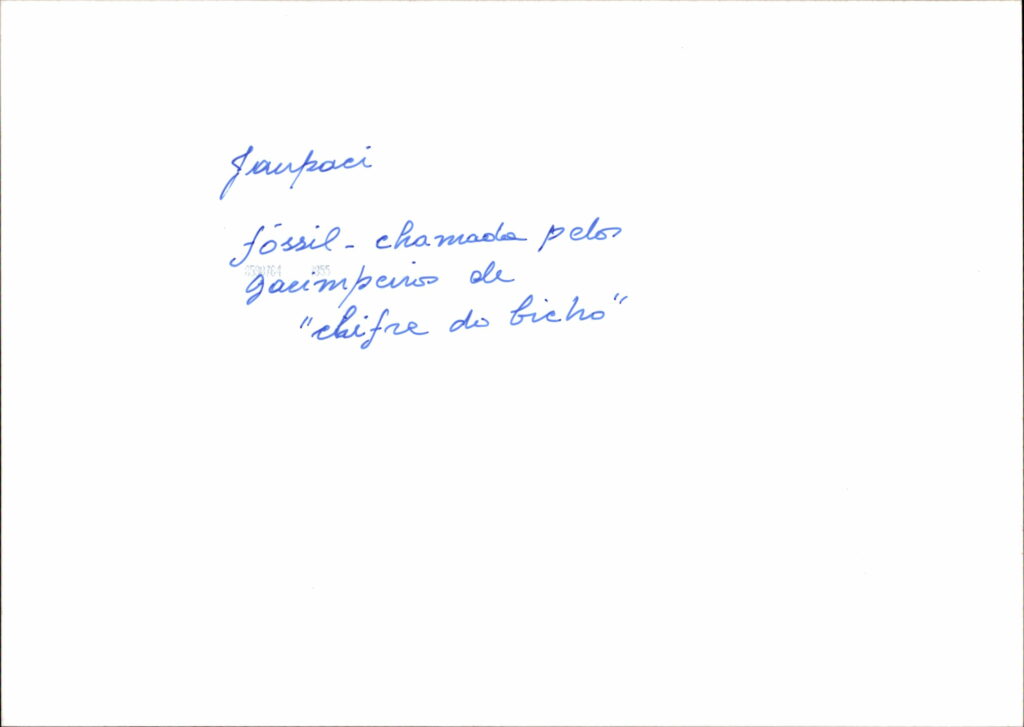 Jaupaci
fóssil - chamada pelos
garimpeiros de
"chifre do bicho"